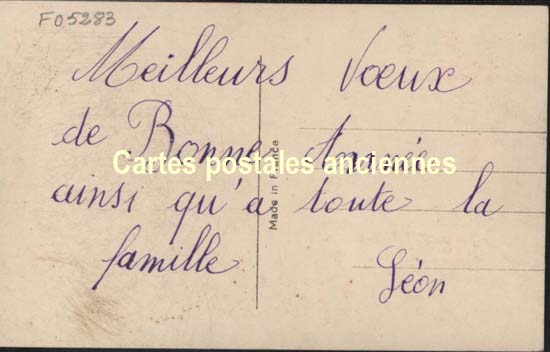 F05283
Meilleurs Voeux
de Bonne Année
Cartes postales anciennes
ainsi qu'a toute la
famille
Léon
Made in France